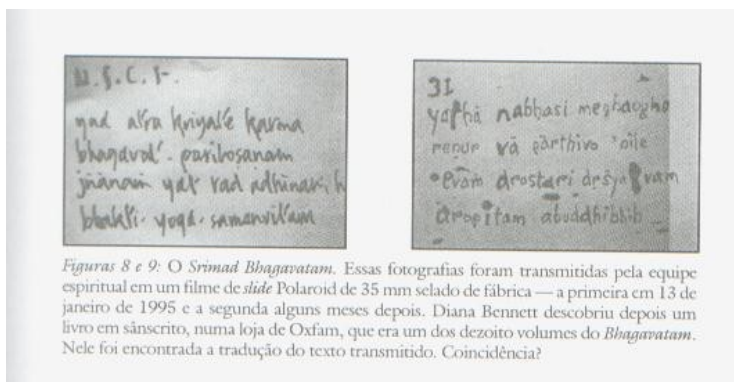 yad atra kriyate karma
bhagavat-paritosanam
jñānam yat tad adhinam h
bhakti-yoga-samanvitam
31
yathā nabhasi meghaugho
renur vā pārthivo 'nile
evam drastari drśyatvam
āropitam abuddhibhih
Figuras 8 e 9: O Srimad Bhagavatam. Essas fotografias foram transmitidas pela equipe
espiritual em um filme de slide Polaroid de 35 mm selado de fábrica — a primeira em 13 de
janeiro de 1995 e a segunda alguns meses depois. Diana Bennett descobriu depois um
livro em sânscrito, numa loja de Oxfam, que era um dos dezoito volumes do Bhagavatam.
Nele foi encontrada a tradução do texto transmitido. Coincidência?